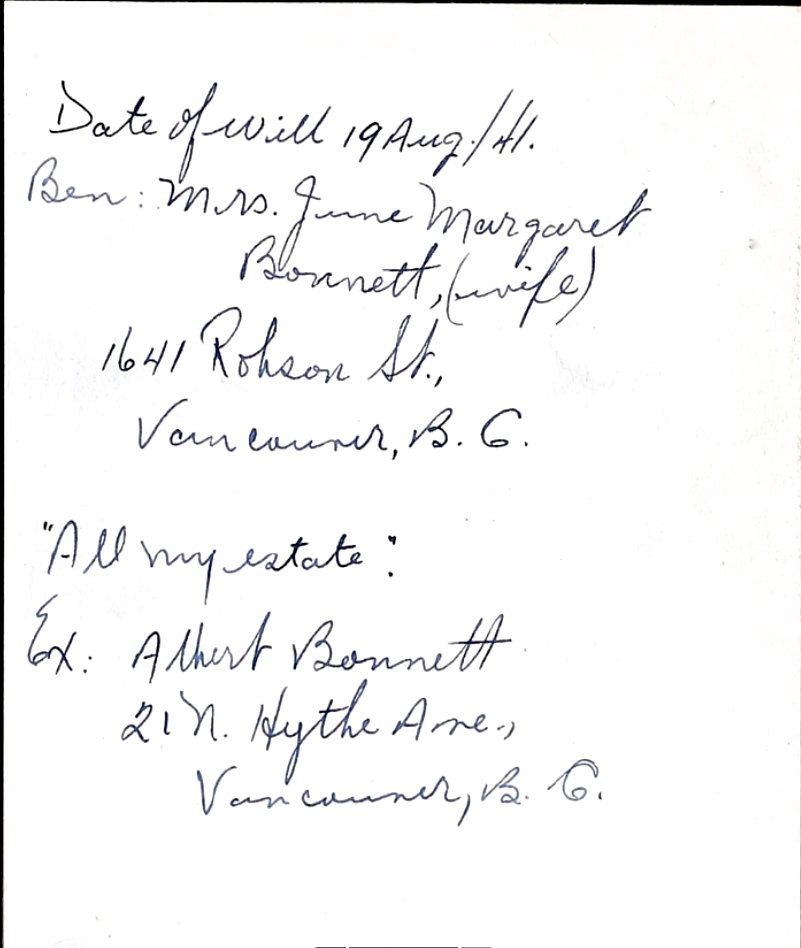 Date of Will 19 Aug./41.
Ben: Mrs. June Margaret
Bonnett, (wife)
1641 Robson St.,
Vancouver, B. C.
"All my estate".
Ex: Albert Bonnett
21 N. Hythe Ave.,
Vancouver, B. C.